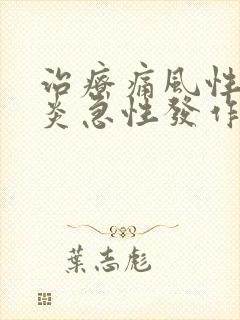 治療痛風性
炎急性發作
葉志彪